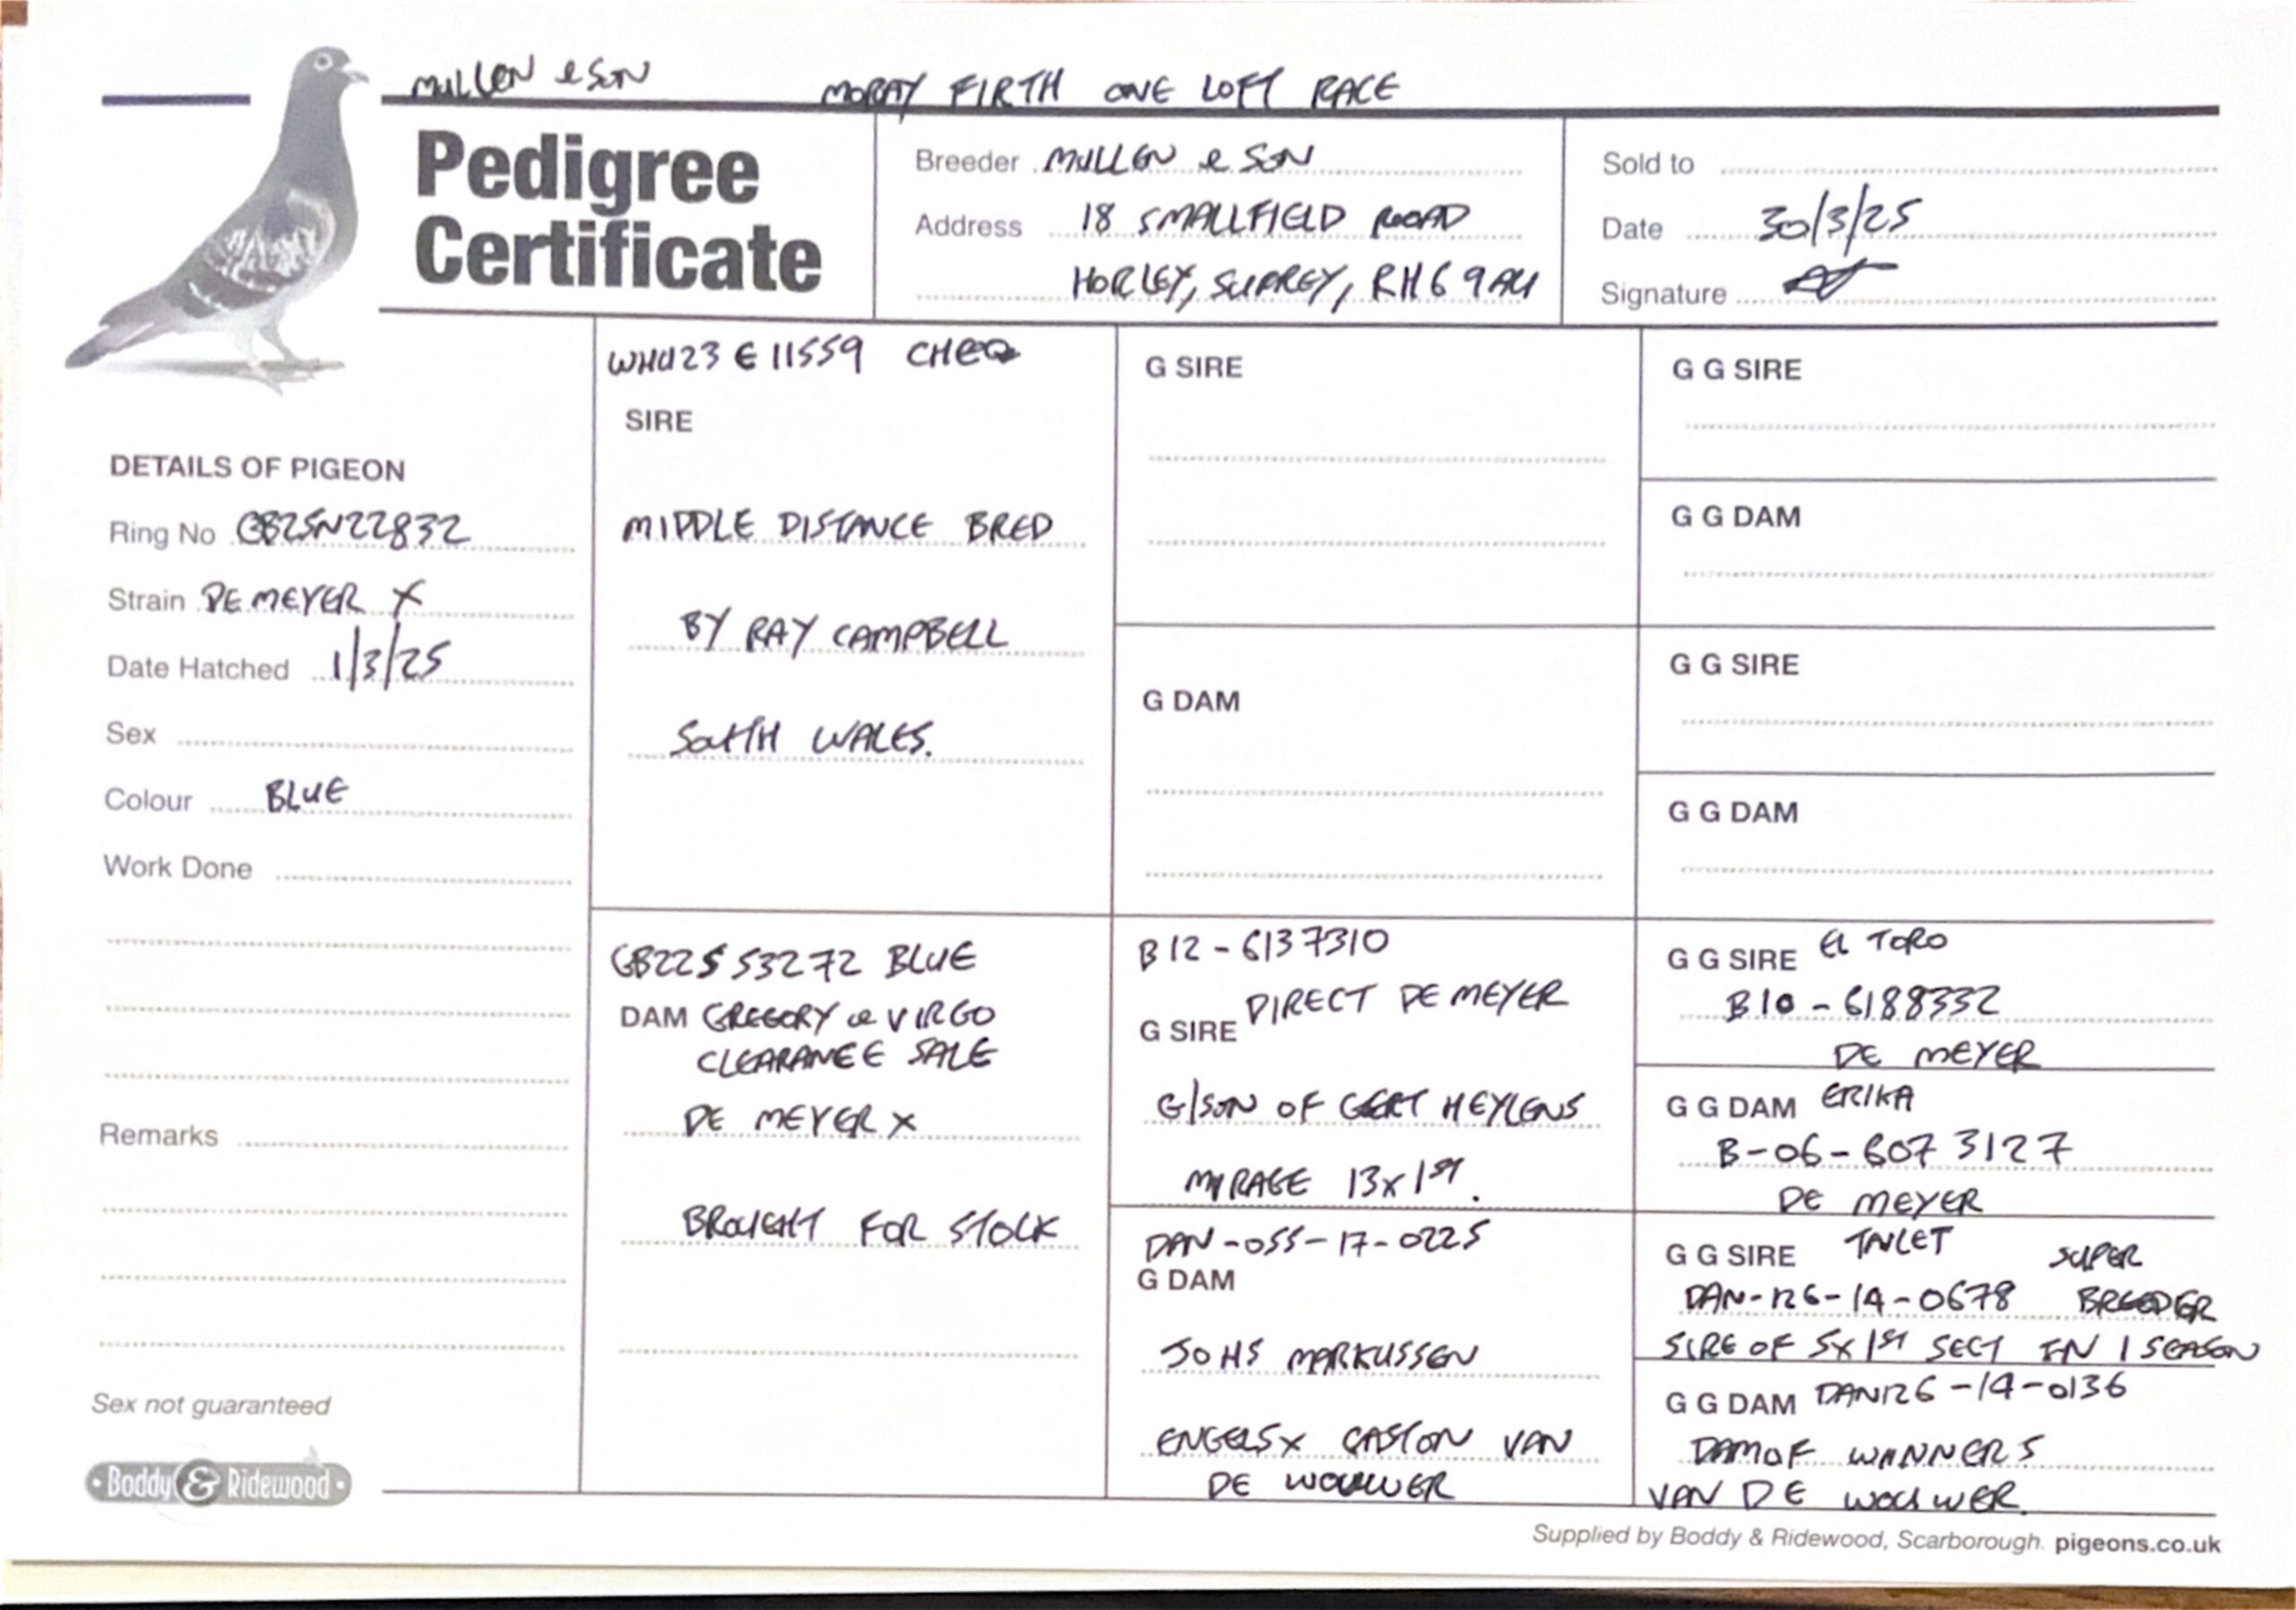 MULLEN & SON MORAY FIRTH ONE LOFT RACE
Pedigree
Certificate
Breeder MULLEN & SON
Address 18 SMALLFIELD ROAD
HORLEY, SURREY, RH6 9AU
Sold to
Date 30/3/25
Signature
DETAILS OF PIGEON
Ring No GB25N22832
Strain DE MEYER X
Date Hatched 1/3/25
Sex
Colour BLUE
Work Done
Remarks
Sex not guaranteed
Boddy & Ridewood
WHU23 E 11559 CHEQ
SIRE
MIDDLE DISTANCE BRED
BY RAY CAMPBELL
SOUTH WALES.
GB22S 53272 BLUE
DAM GREGORY & VIRGO
CLEARANCE SALE
DE MEYER X
BROUGHT FOR STOCK
G SIRE
G DAM
B12-6137310
DIRECT DE MEYER
G SIRE
G/SON OF GERT HEYLENS
MIRAGE 13x1ST.
DAN-055-17-0225
G DAM
JOHS MARKUSSEN
ENGELS X GASTON VAN
DE WOUWER
G G SIRE
G G DAM
G G SIRE
G G DAM
G G SIRE EL TORO
B10-6188332
DE MEYER
G G DAM ERIKA
B-06-6073127
DE MEYER
G G SIRE SUPER
DAN-126-14-0678 BREEDER
SIRE OF 5X1ST SECT IN 1 SEASON
G G DAM DAN126-14-0136
DAM OF WINNERS
VAN DE WOUWER
Supplied by Boddy & Ridewood, Scarborough. pigeons.co.uk